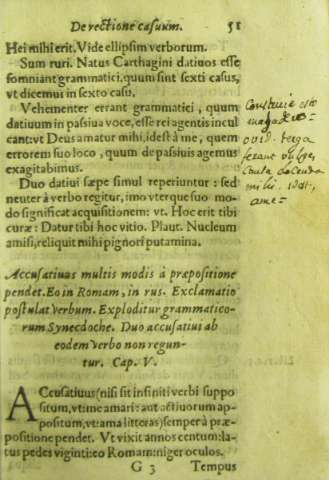 De rectione casuum. 51
Hei mihi erit. Vide ellipsim verborum.
Sum ruri. Natus Carthagini datiuos esse
somniant grammatici, quum sint sexti casus,
vt dicemus in sexto casu.
Vehementer errant grammatici, quum
datiuum in passiua voce, esse rei agentis incul
cant: vt Deus amatur mihi, idest à me, quem
errorem suo loco, quum de passiuis agemus
exagitabimus.
Duo datiui sæpe simul reperiuntur: sed
neuter à verbo regitur, imo vterque suo mo-
do significat acquisitionem: vt. Hoc erit tibi
curæ: Datur tibi hoc vitio. Plaut. Nucleum
amisi, reliquit mihi pignori putamina.
ovid. terga
Accusatiuus multis modis à præpositione
pendet. Eo in Romam, in rus. Exclamatio
postulat verbum. Exploditur grammatico-
rum Synecdoche. Duo accusatiui ab
eodem verbo non regun-
tur. Cap. V.
ACcusatiuus (nisi sit infiniti verbi suppo
situm, vt: me amari: aut actiuorum ap-
positum, vt: ama litteras) semper à præ-
positione pendet. Vt vixit annos centum: la-
tus pedes viginti: eo Romam: niger oculos.
G 3 Tempus